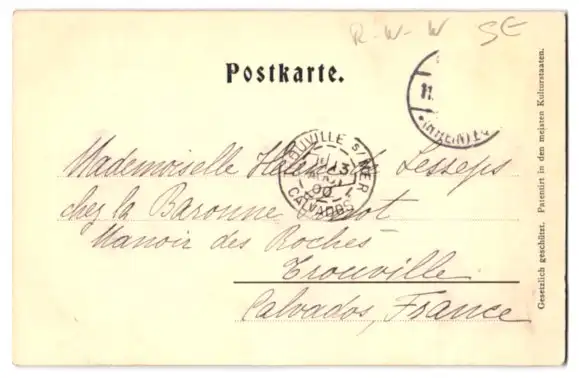 R-W-W SE
Postkarte.
11.
TROUVILLE S/MER
13
00
CALVADOS
Mademoiselle Lesseps
chez la Baronne
Manoir des Roches
Trouville
Calvados, France
Gesetzlich geschützt. Patentirt in den meisten Kulturstaaten.